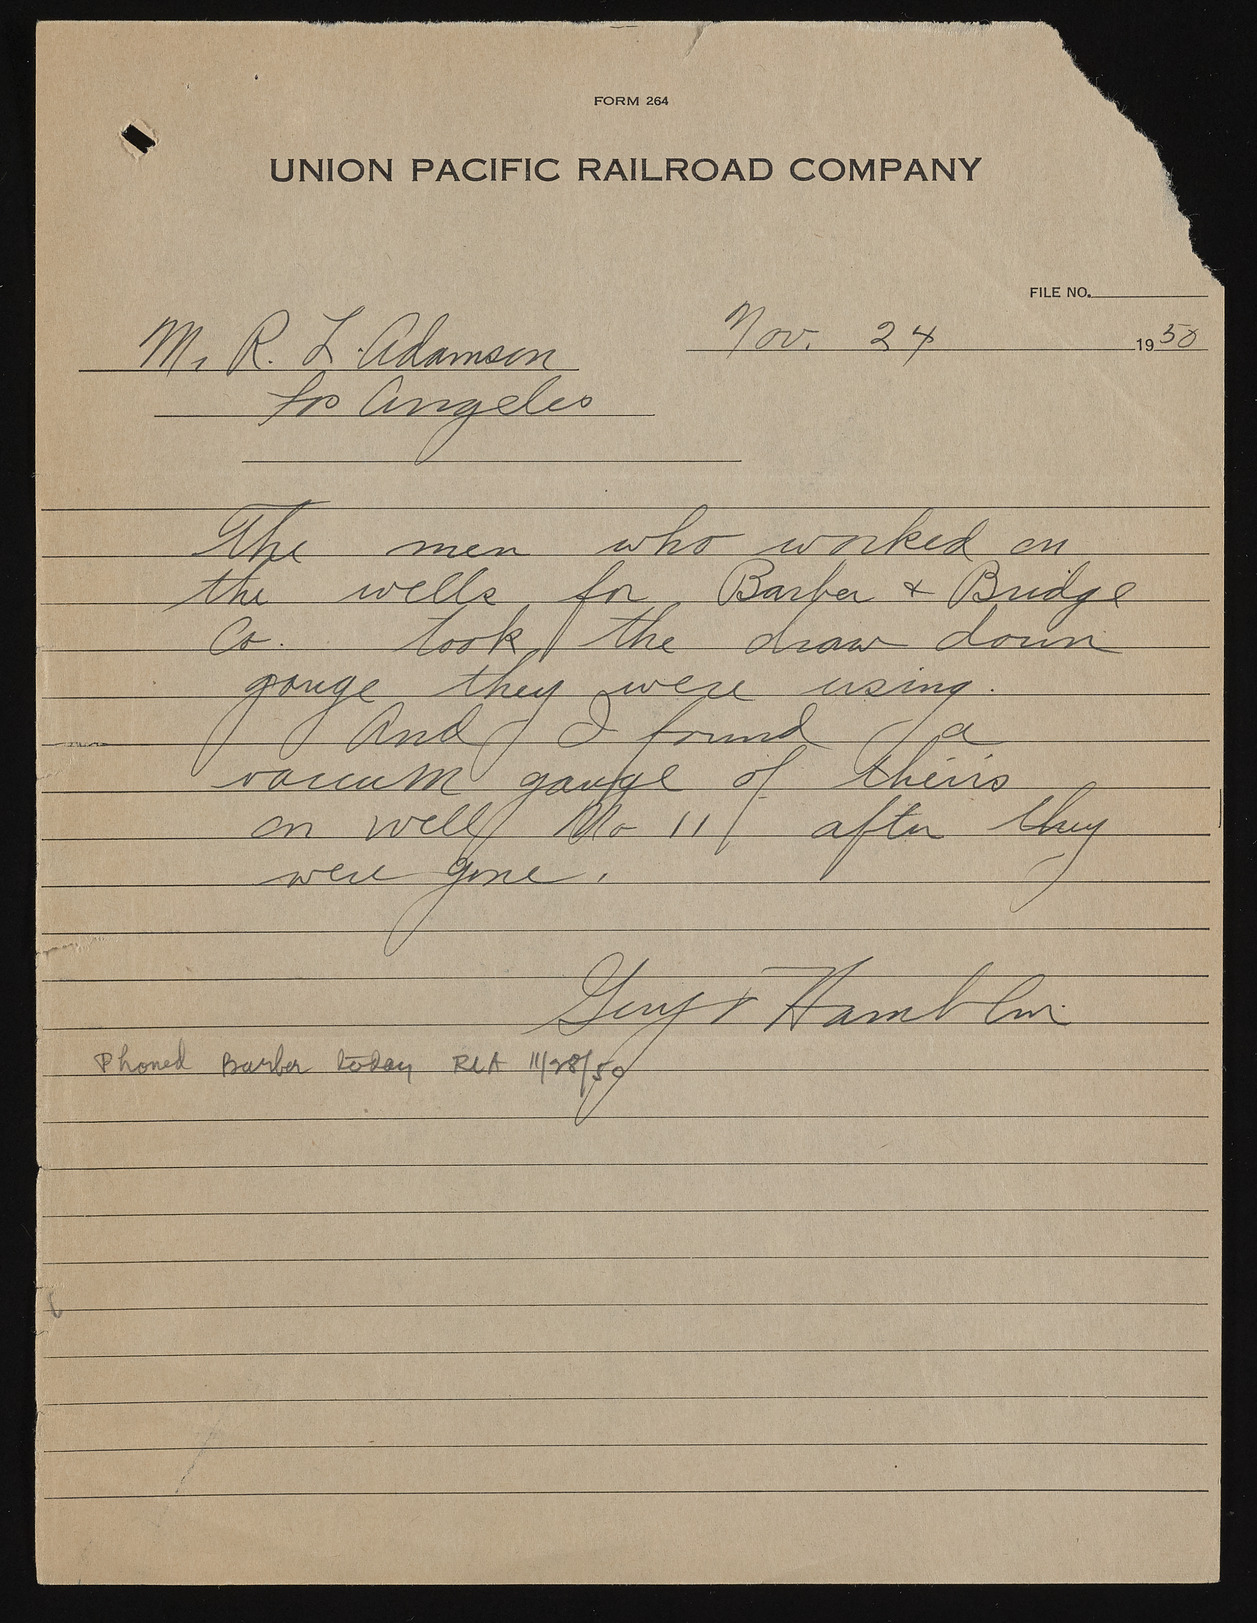 FORM 264
UNION PACIFIC RAILROAD COMPANY
FILE NO.
Nov. 24 1950
Mr R. L. Adamson
Los Angeles
The men who worked on
the wells for Barber & Bridge
Co. took the draw down
gauge they were using.
And I found a
vaccum gauge of theirs
on well No 11 after they
were gone.
Hamblin
Phoned Barber today RLA 11/28/50